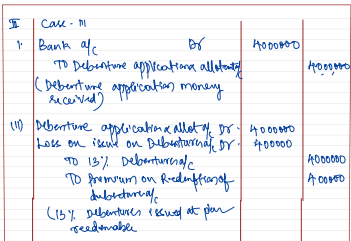 II Case - III
i. Bank a/c Dr 4000000
To Debenture application & allotment a/c 4000000
(Debenture application money
received)
(II) Debenture application & allot a/c Dr. 4000000
Loss on issue on Debenture a/c Dr. 400000
To 13% Debenture a/c 4000000
To Premium on Redemption of 400000
debenture a/c
(13% Debentures issued at par
reedemable